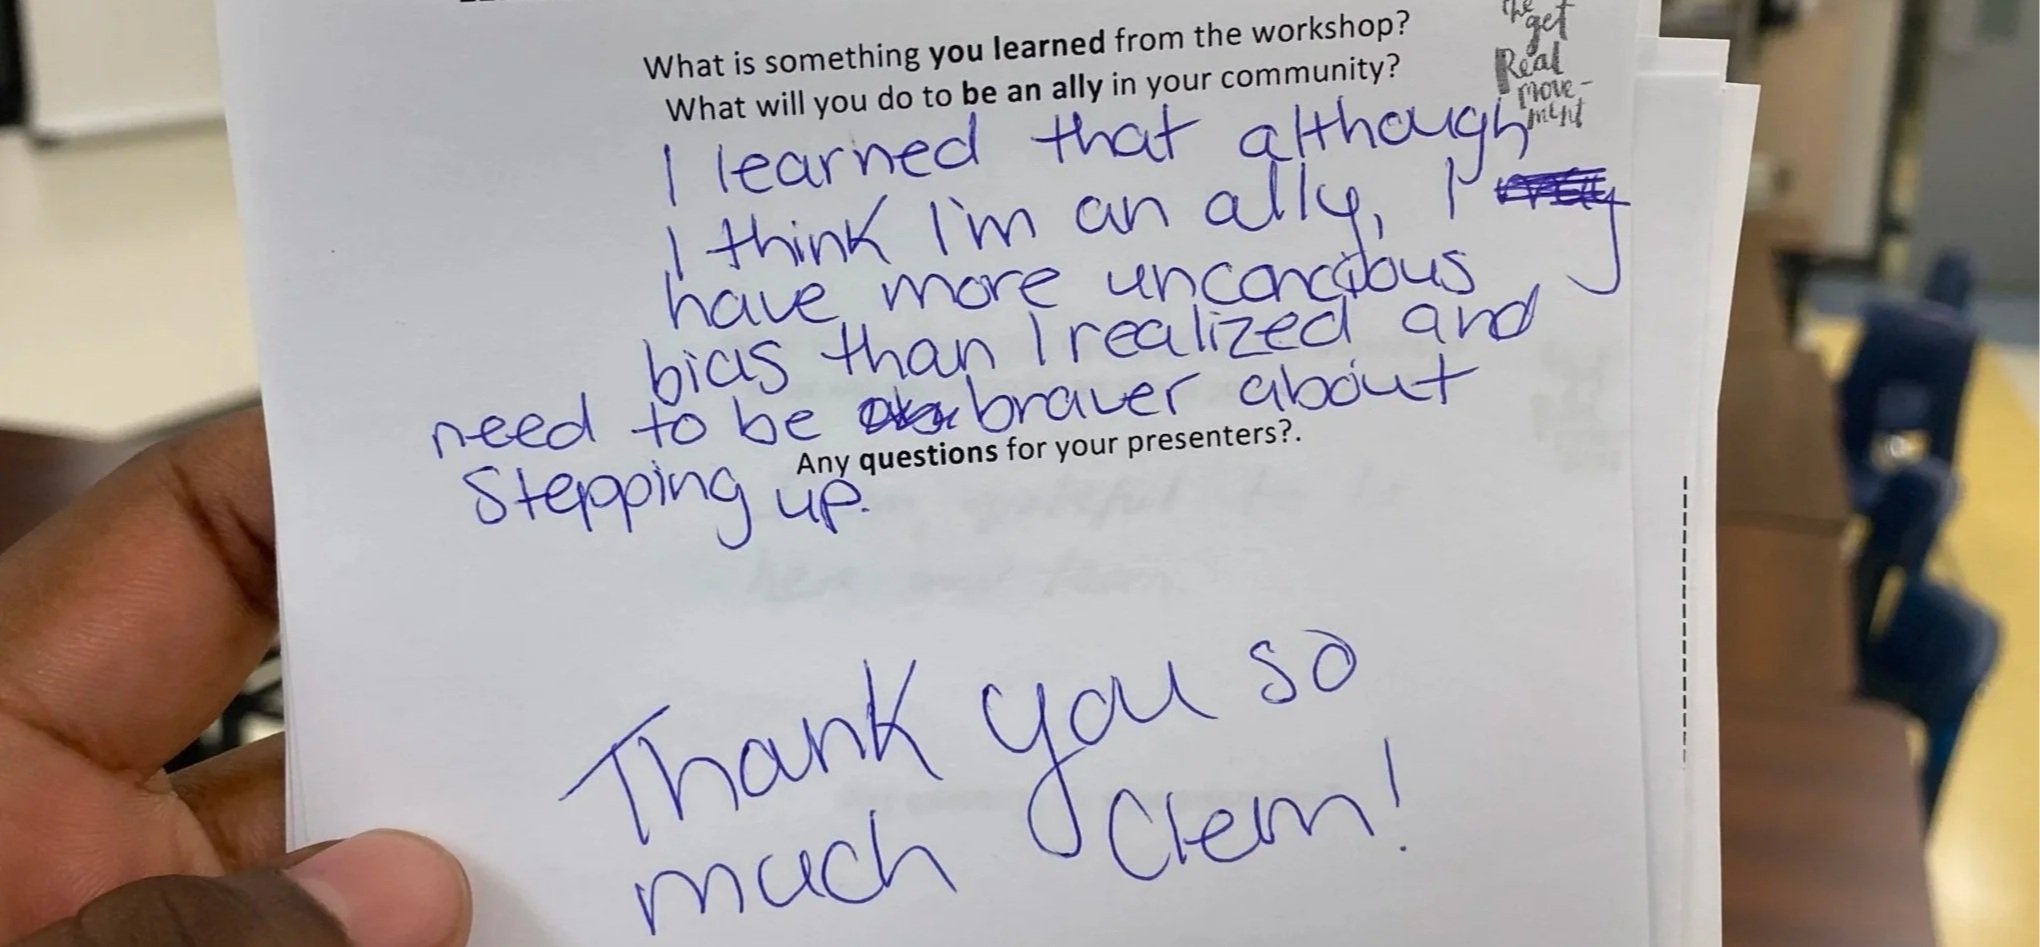 What is something you learned from the workshop?
What will you do to be an ally in your community?
the
get
Real
move-
ment
I learned that although
I think I'm an ally, I
have more unconcious
bias than I realized and
need to be braver about
Stepping up.
Any questions for your presenters?.
Thank you so
much Clem!